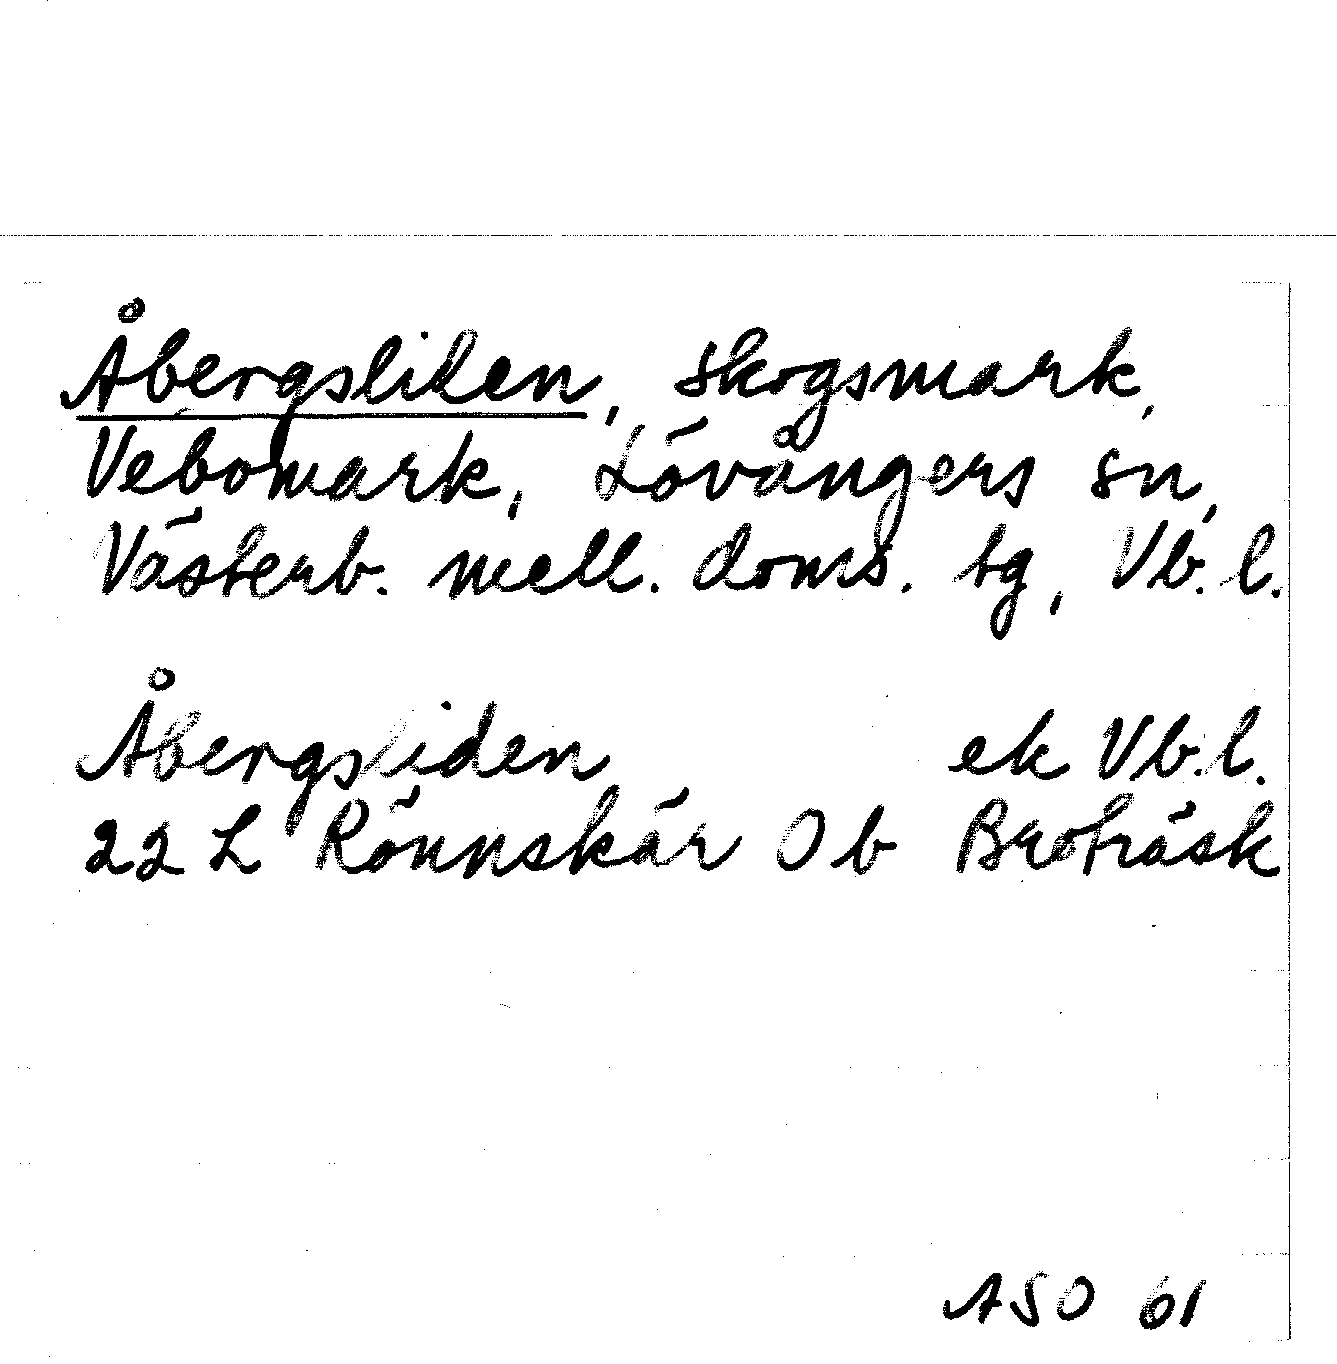 Åbergsliden, skogsmark,
Vebomark, Lövångers sn,
Västerb. mell. doms. tg, Vb. l.
Åbergsliden ek Vb. l.
22 L Rönnskär Ob Broträsk
ASO 61